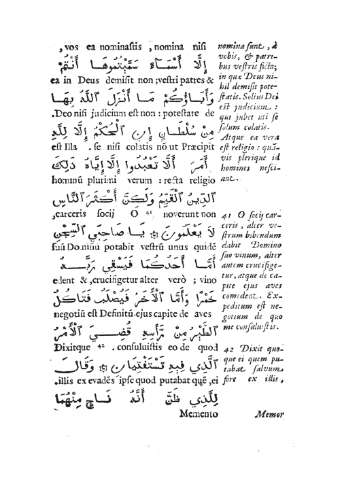 , vos ea nominastis , nomina nisi
إِلَّا أَسْمَاءً سَمَّيْتُمُوهَا أَنْتُمْ
ea in Deus demisit non ; vestri patres &
وَآبَاؤُكُمْ مَا أَنْزَلَ اللَّهُ بِهَا
. Deo nisi judicium est non : potestate
مِنْ سُلْطَانٍ إِنِ الْحُكْمُ إِلَّا لِلَّهِ
est Illa . se nisi colatis nō ut Præcipit
أَمَرَ أَلَّا تَعْبُدُوا إِلَّا إِيَّاهُ ذَلِكَ
hominū plurimi verum : recta religio
الدِّينُ الْقَيِّمُ وَلَكِنَّ أَكْثَرَ النَّاسِ
, carceris socij O 41 . noverunt non
لَا يَعْلَمُونَ يَا صَاحِبَيِ السِّجْنِ
suū Domīnū potabit vestrū unus quidē
أَمَّا أَحَدُكُمَا فَيَسْقِي رَبَّهُ
edent & , crucifigetur alter verò ; vino
خَمْرًا وَأَمَّا الْآخَرُ فَيُصْلَبُ فَتَأْكُلُ
negotiū est Definitū . ejus capite de aves
الطَّيْرُ مِنْ رَأْسِهِ قُضِيَ الْأَمْرُ
Dixitque 42 . consuluistis eo de quod
الَّذِي فِيهِ تَسْتَفْتِيَانِ وَقَالَ
, illis ex evadēs ipse quod putabat quē , ei
لِلَّذِي ظَنَّ أَنَّهُ نَاجٍ مِنْهُمَا
Memento
nomina sunt , à
vobis, & patri-
bus vestris ficta;
in quæ Deus ni-
hil demisit pote-
statis. Solius Dei
est judicium :
qui jubet uti se
solum colatis.
Atque ea vera
est religio : quā-
vis plerique id
homines nesci-
ant.
41 O socij car-
ceris, alter ve-
strum bibendum
dabit Domino
suo vinum, alter
autem crucifige-
tur, atque de ca-
pite ejus aves
comedent. Ex-
peditum est ne-
gotium de quo
me consuluistis.
42 Dixit quo-
que ei quem pu-
tabat salvum
fore ex illis,
Memor